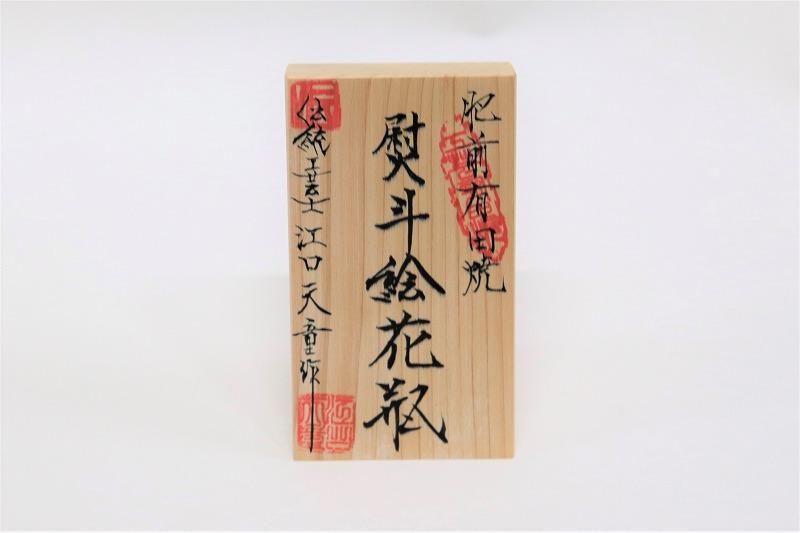 肥前有田焼
熨斗絵花瓶
伝統工芸士 江口天童作